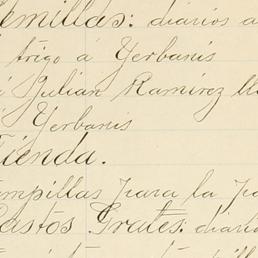 Semillas: diarios a
trigo á Yerbanis
á Julian Ramirez
Yerbanis
Tienda.
para la
Gastos Grales: diario